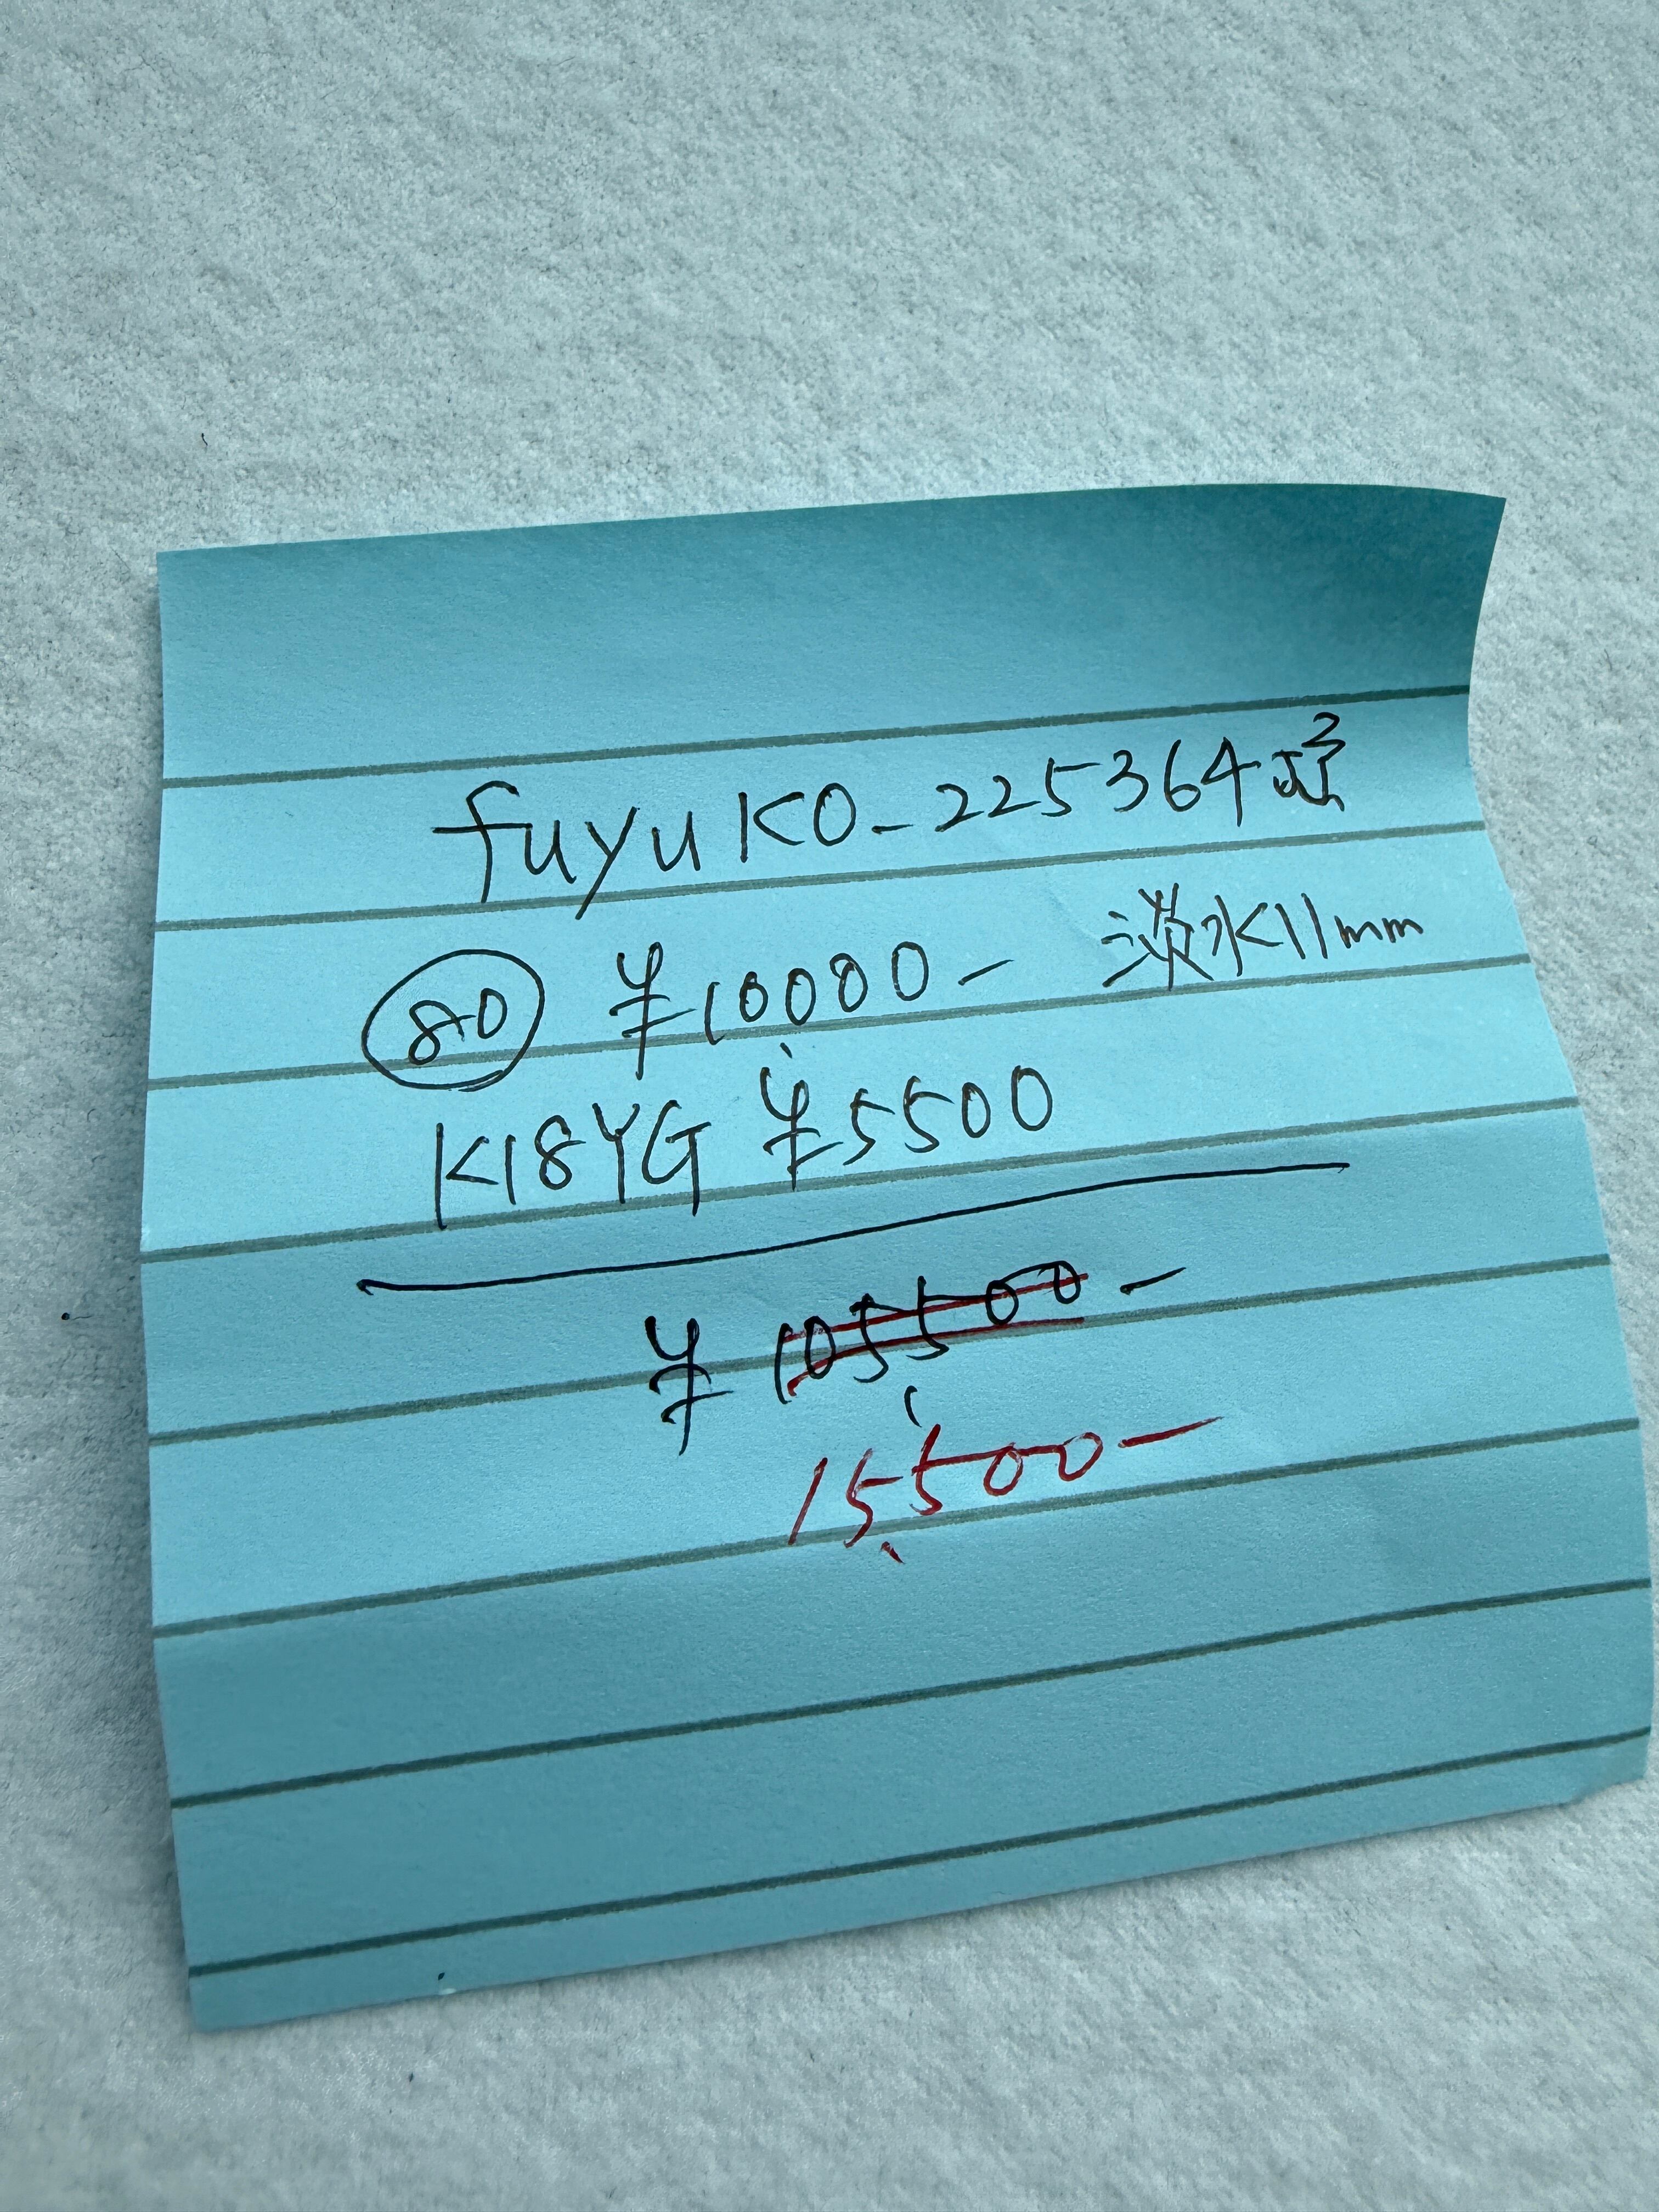 fuyuko_225364 様
80 ¥10,000- 淡水11mm
K18YG ¥5500
¥105,500-
15,500-